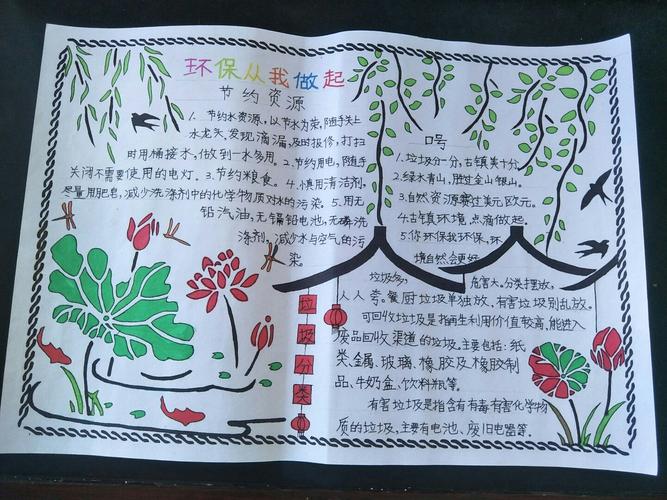 环保从我做起
节约资源
1.节约水资源,以节水为荣,随手关上
水龙头,发现滴漏,及时报修,打扫
时用桶接水,做到一水多用。2.节约用电,随手
关闭不需要使用的电灯。3.节约粮食。4.慎用清洁剂,
尽量用肥皂,减少洗涤剂中的化学物质对水的污染。5.用无
铅汽油,无镉铅电池,无磷洗
涤剂,减少水与空气的污
染。
口号
1.垃圾分一分,古镇美十分。
2.绿水青山,胜过金山银山。
3.自然资源赛过美元欧元。
4.古镇环境,点滴做起。
5.你环保我环保,环
境自然会更好
垃圾分类
垃圾多,危害大。分类摆放,
人人夸。餐厨垃圾单独放,有害垃圾别乱放。
可回收垃圾是指再生利用价值较高,能进入
废品回收渠道的垃圾。主要包括:纸
类、金属、玻璃、橡胶及橡胶制
品、牛奶盒、饮料瓶等。
有害垃圾是指含有有毒有害化学物
质的垃圾,主要有电池、废旧电器等。